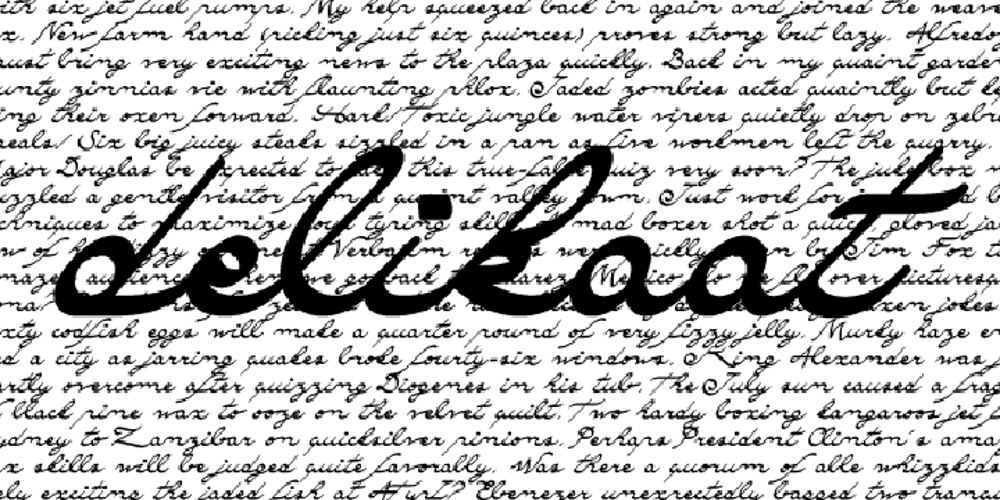 with six jet fuel pumps. My help squeezed back in again and joined the weave
x. New farm hand (picking just six quinces) proves strong but lazy. Alfredo
must bring very exciting news to the plaza quickly. Back in my quaint garden
unty zinnias vie with flaunting phlox. Jaded zombies acted quaintly but
ing their oxen forward. Hark! Toxic jungle water vipers quietly drop on zebra
eals! Six big juicy steaks sizzled in a pan as five workmen left the quarry.
ajor Douglas be expected to take this true-false quiz very soon? The juke box
uzzled a gentle visitor from a quaint valley town. Just work for
chniques to maximize your typing skill. mad boxer shot a quick, gloved ja
w of Verbatim we by Jim Fox
delikaat
maze audience give go back Mexico to over picturesq
oxen jokes
xty codfish eggs will make a quarter pound of very fizzy jelly. Murky haze en
d a city as jarring quakes broke fourty-six windows. King Alexander was
rtly overcome after quizzing Diogenes in his tub. The July sun caused a frag
f black pine wax to ooze on the velvet quilt. Two hardy boxing kangaroos jet
ydney to Zanzibar on quicksilver pinions. Perhaps President Clinton's ama
x skills will be judged quite favorably. Was there a quorum of able whizzkids
ely exciting the jaded fish at Ebenezer unexpectedly bagged two tranq